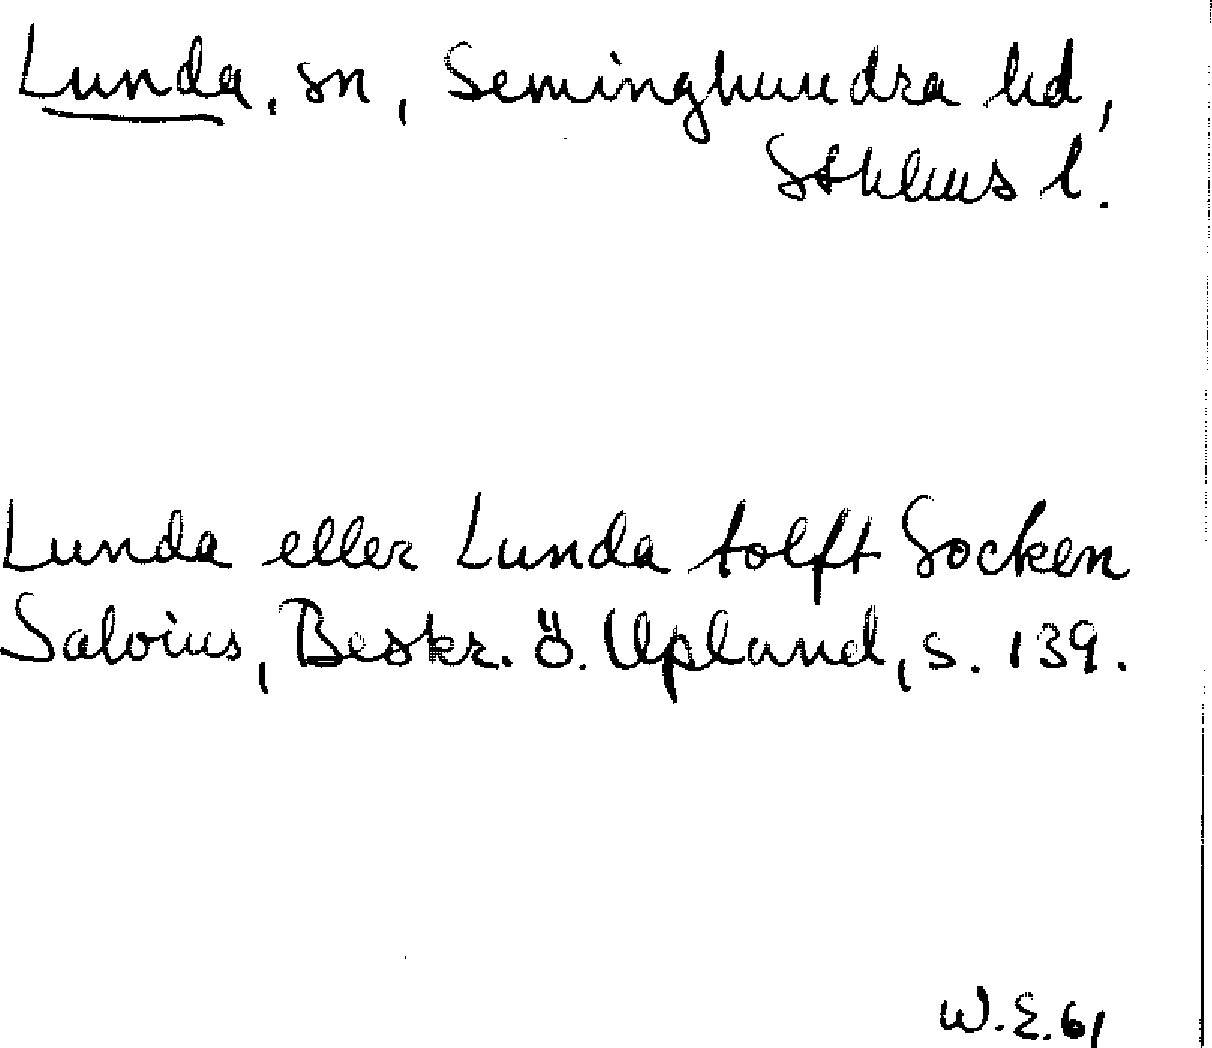 Lunda, sn, Seminghundra hd,
Sthlms l.
Lunda eller Lunda tolft Socken
Salvius, Beskr. ö. Upland, s. 139.
W.E. 61